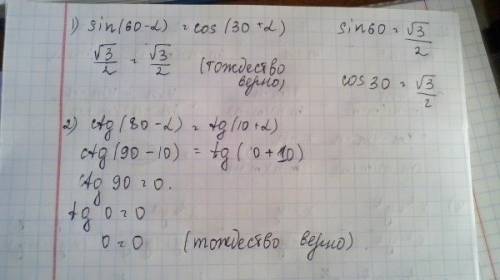 1) sin(60-α) = cos(30+α) sin60 = √3/2
√3/2 = √3/2 (тождество верно)
cos30 = √3/2
2) ctg(80-α) = tg(10+α)
ctg(90-10) = tg(0+10)
ctg 90 = 0.
tg 0 = 0
0 = 0 (тождество верно)